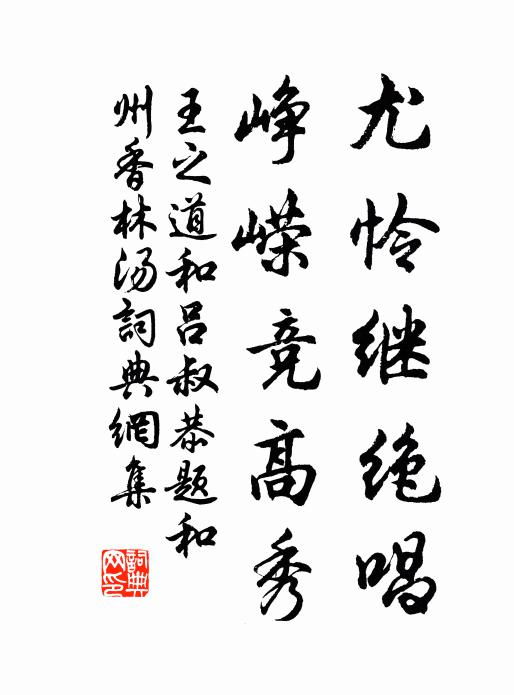 尤怜继绝唱
峥嵘竞高秀
王之道和吕叔恭题和
州香林汤詞典網集
詞典
网印